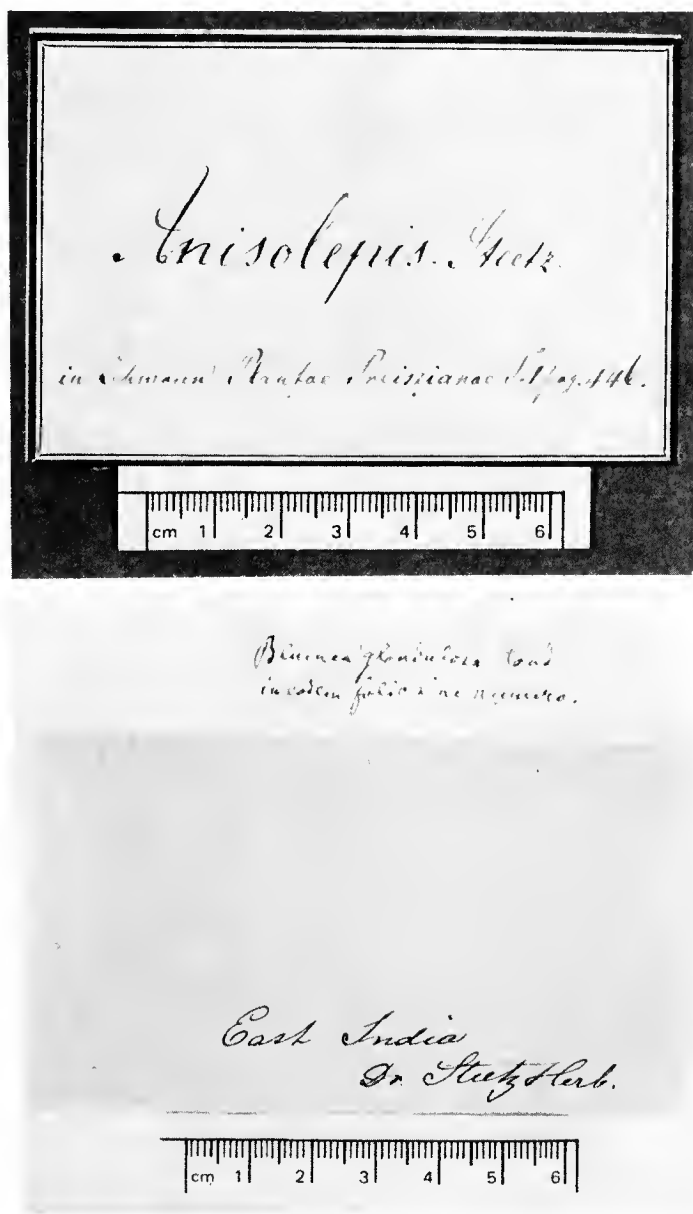 Anisolepis. Steetz.
in Lehmann Plantae Preissianae I. pag. 446.
cm 1 2 3 4 5 6
Blumea glandulosa
in eodem folio sine numero.
East India
Dr. Steetz Herb.
cm 1 2 3 4 5 6